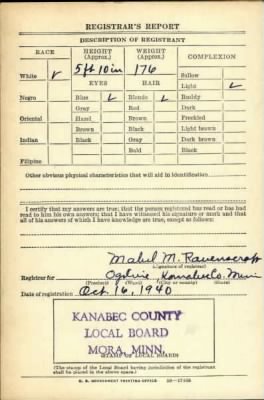 REGISTRAR'S REPORT
DESCRIPTION OF REGISTRANT
RACE HEIGHT (Approx.) WEIGHT (Approx.) COMPLEXION
White ✓ 5 ft 10 in 176 Sallow
EYES HAIR Light ✓
Negro Blue ✓ Blonde ✓ Ruddy
Gray Red Dark
Oriental Hazel Brown Freckled
Brown Black Light brown
Indian Black Gray Dark brown
Bald Black
Filipino
Other obvious physical characteristics that will aid in identification
I certify that my answers are true; that the person registered has read or has had
read to him his own answers; that I have witnessed his signature or mark and that
all of his answers of which I have knowledge are true, except as follows:
Mabel M. Ravenscroft
(Signature of registrar)
Registrar for Ogilvie, Kanabec Co. Minn
(Precinct) (Ward) (City or county) (State)
Date of registration Oct. 16, 1940
KANABEC COUNTY
LOCAL BOARD
MORA, MINN.
(STAMP OF LOCAL BOARD)
(The stamp of the Local Board having jurisdiction of the registrant
shall be placed in the above space.)
U. S. GOVERNMENT PRINTING OFFICE